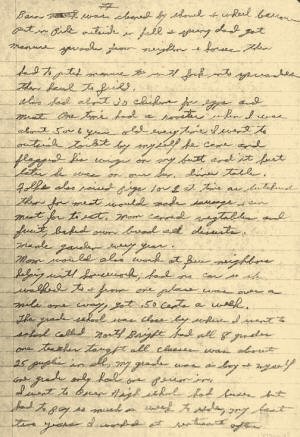 Barn was cleaned by shovel & wheel barrow
put in pile outside in fall & spring dad got
manure spreader from neighbor & horses then
had to pitch manure to with fork into spreader
then haul to field.
Also had about 30 chickens for eggs and
meat. One time had a rooster when I was
about 5 or 6 year old every time I went to
outside toilet by myself he came and
flapped his wings on my butt and it hurt
later he was on our Sun. dinner table.
Folks also raised pigs 1 or 2 at time we butchered
them for meat would make sausage &
meat for to eat. Mom canned vegtables and
fruit, baked own bread all deserts.
made garden every year.
Mom would also work at few neighbors
helping with housework, had no car so she
walked to & from one place was over a
mile one way, got .50 cents a week.
The grade school was close by where I went to
school called North Bright had all 8 grades
one teacher taught all classes was about
25 pupils in all, my grade was a boy & myself
one grade only had one person in.
I went to High school had buses but
had to pay so much a week to ride, my last
two years I worked at after